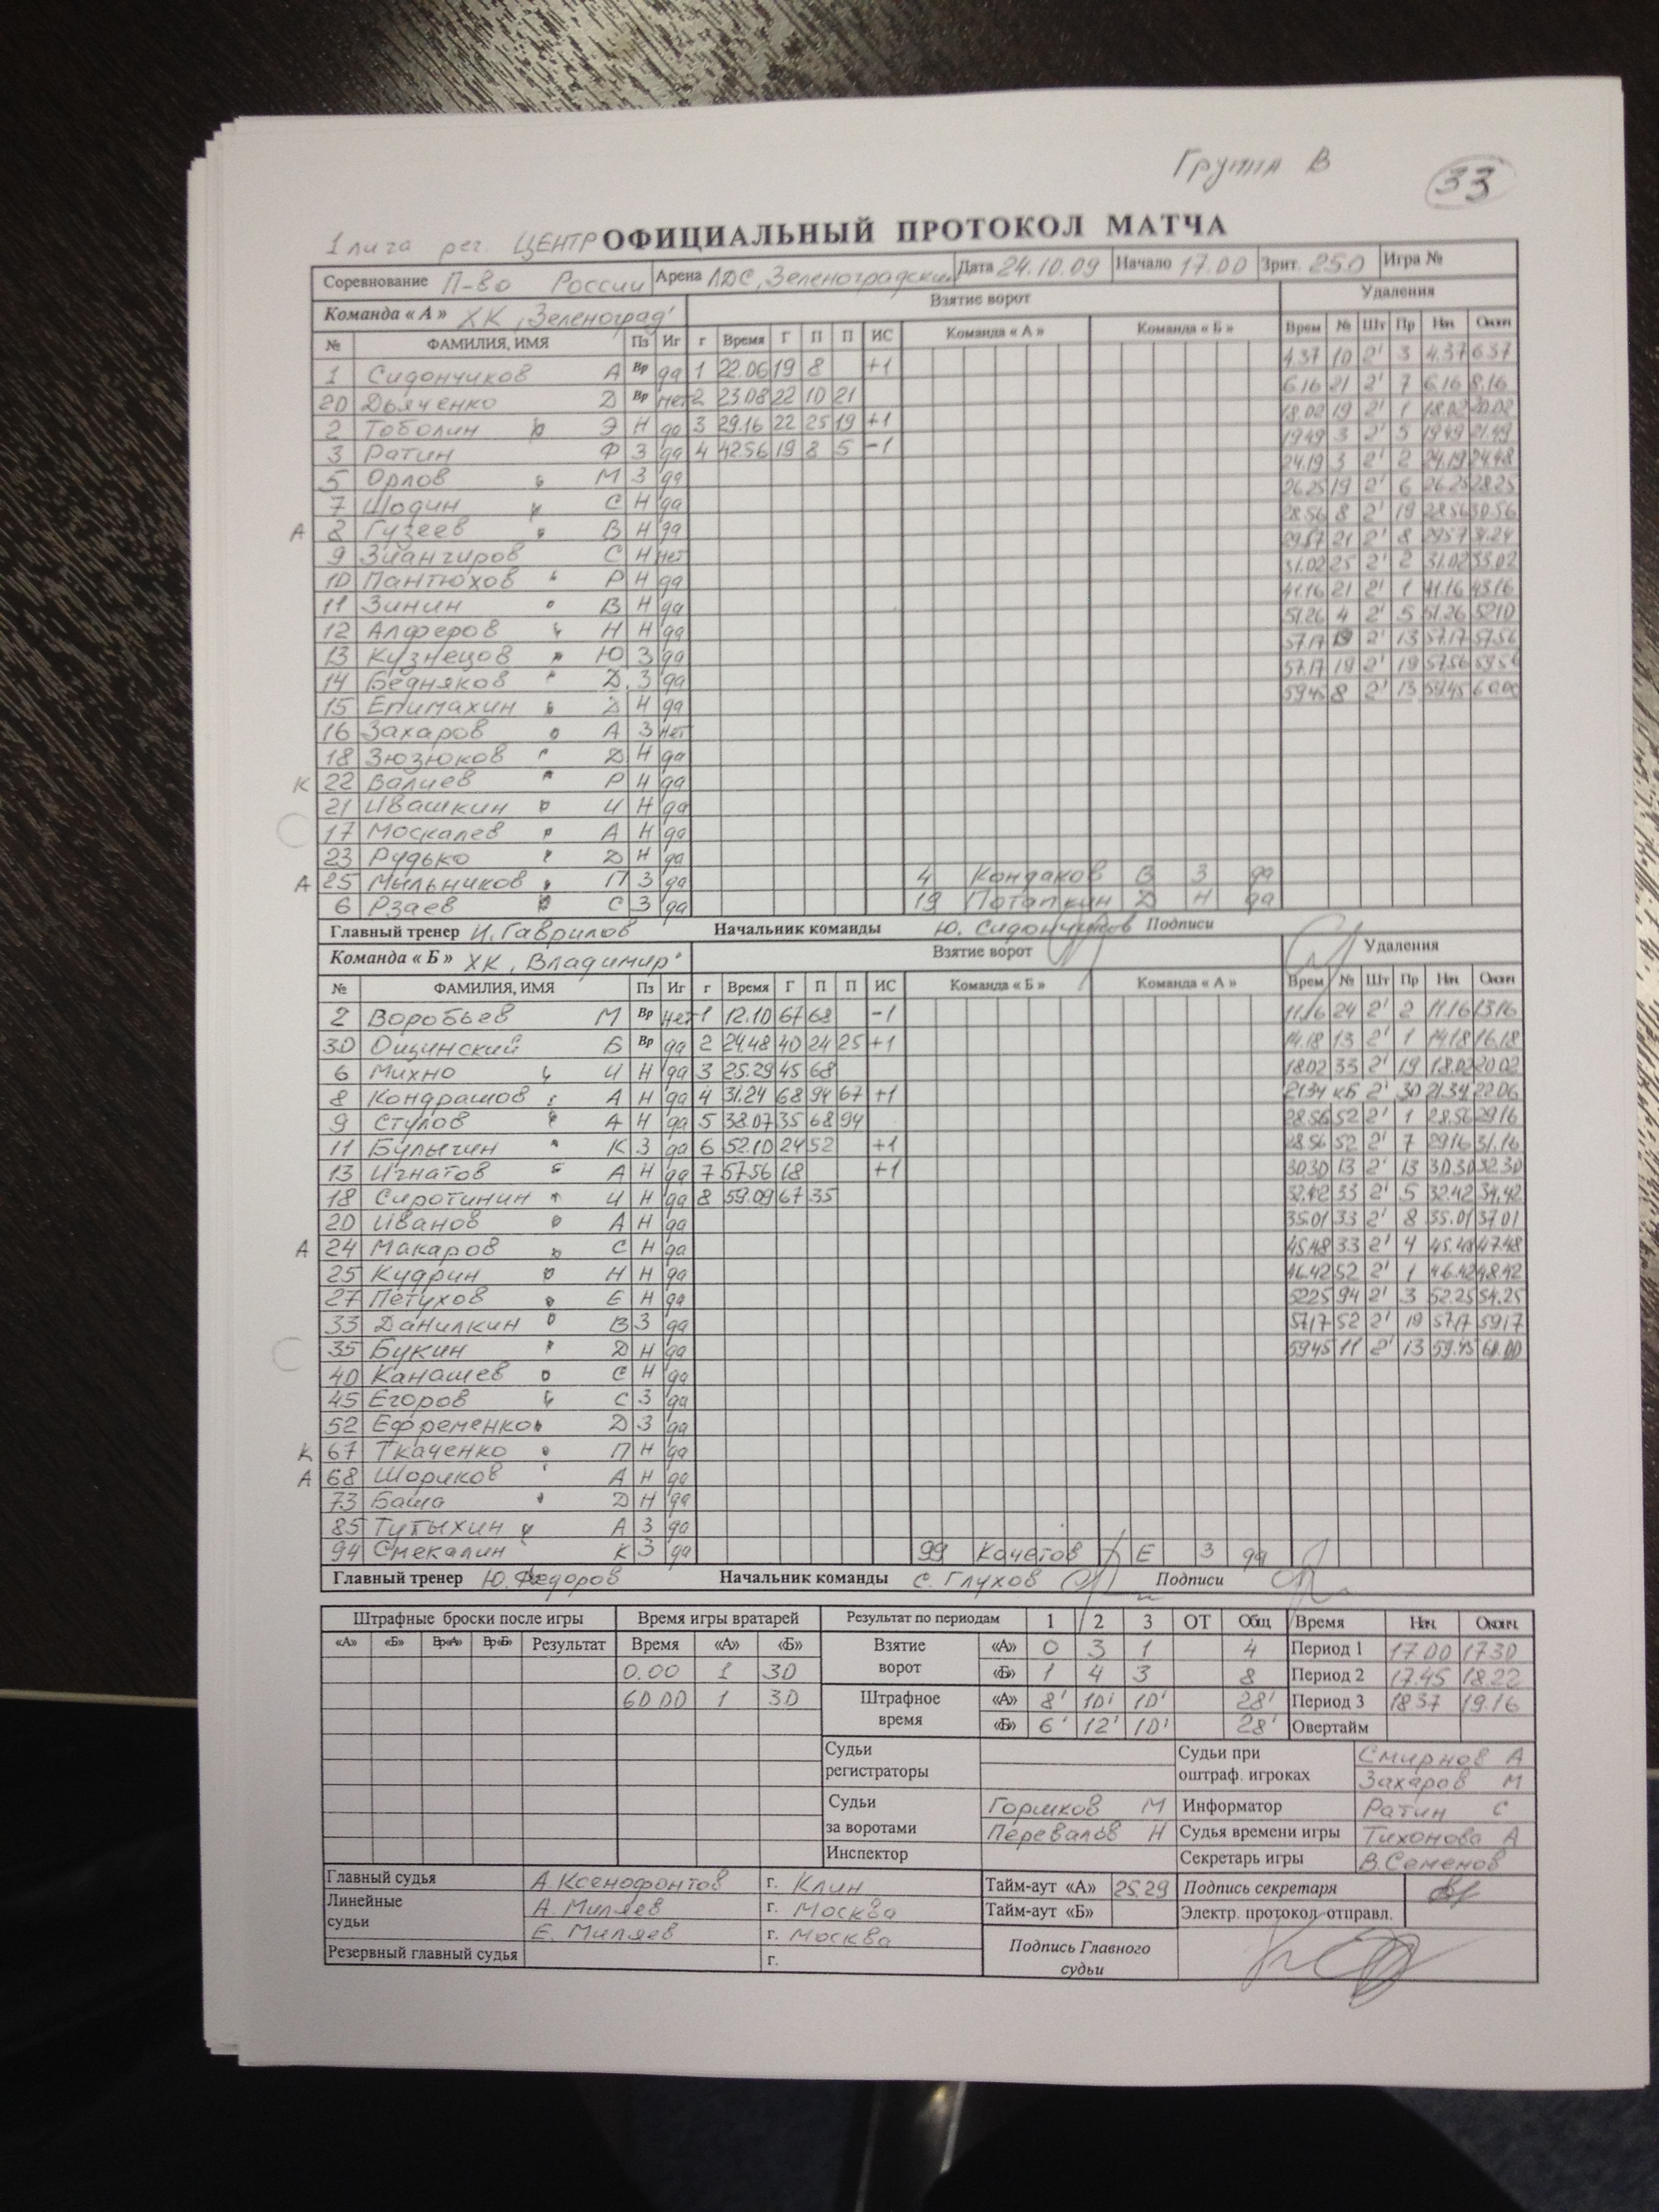 Группа В
33
1 лига рег. ЦЕНТР ОФИЦИАЛЬНЫЙ ПРОТОКОЛ МАТЧА
Соревнование П-во России Арена ЛДС „Зеленоградский Дата 24.10.09 Начало 17.00 Зрит. 250 Игра №
Команда « А » ХК „Зеленоград" Взятие ворот Удаления
№ ФАМИЛИЯ, ИМЯ Пз Иг г Время Г П П ИС Команда « А » Команда « Б » Врем № Шт Пр Нач. Оконч
1 Сидончиков А Вр да 1 22.06 19 8 +1 4.37 10 2' 3 4.37 6.37
20 Дьяченко Д Вр нет 2 23.08 22 10 21 6.16 21 2' 7 6.16 8.16
2 Тоболин Э Н да 3 29.16 22 25 19 +1 18.02 19 2' 1 18.02 20.02
3 Ратин Ф З да 4 42.56 19 8 5 -1 19.49 3 2' 5 19.49 21.49
5 Орлов М З да 24.19 3 2' 2 24.19 24.48
7 Шодин С Н да 26.25 19 2' 6 26.25 28.25
А 8 Гузеев В Н да 28.56 8 2' 19 28.56 30.56
9 Зиангиров С Н нет 29.57 21 2' 8 29.57 31.24
10 Пантюхов Р Н да 31.02 25 2' 2 31.02 33.02
11 Зинин В Н да 41.16 21 2' 1 41.16 43.16
12 Алферов Н Н да 51.26 4 2' 5 51.26 52.10
13 Кузнецов Ю З да 57.17 19 2' 13 57.17 57.56
14 Бедняков Д З да 57.17 19 2' 19 57.56 59.56
15 Епимахин Д Н да 59.45 8 2' 13 59.45 60.00
16 Захаров А З нет
18 Зюзюков Д Н да
К 22 Валиев Р Н да
21 Ивашкин И Н да
17 Москалев А Н да
23 Рудько Д Н да
А 25 Мыльников П З да 4 Кондаков В З да
6 Рзаев С З да 19 Потапкин Д Н да
Главный тренер И. Гаврилов Начальник команды Ю. Сидончиков Подписи
Команда « Б » ХК „Владимир" Взятие ворот Удаления
№ ФАМИЛИЯ, ИМЯ Пз Иг г Время Г П П ИС Команда « Б » Команда « А » Врем № Шт Пр Нач. Оконч
2 Воробьев М Вр нет 1 12.10 67 68 -1 11.16 24 2' 2 11.16 13.16
30 Ощинский Б Вр да 2 24.48 40 24 25 +1 14.18 13 2' 1 14.18 16.18
6 Михно И Н да 3 25.29 45 68 18.02 33 2' 19 18.02 20.02
8 Кондрашов А Н да 4 31.24 68 94 67 +1 21.34 КБ 2' 30 21.34 22.06
9 Стулов А Н да 5 38.07 35 68 94 28.56 52 2' 1 28.56 29.16
11 Булычин К З да 6 52.10 24 52 +1 28.56 52 2' 7 29.16 31.16
13 Игнатов А Н да 7 57.56 68 +1 30.30 13 2' 13 30.30 32.30
18 Сиротинин И Н да 8 59.09 67 35 32.42 33 2' 5 32.42 34.42
20 Иванов А Н да 35.01 33 2' 8 35.01 37.01
А 24 Макаров С Н да 45.48 33 2' 4 45.48 47.48
25 Кудрин Н Н да 46.42 52 2' 1 46.42 48.42
27 Петухов Е Н да 52.25 94 2' 3 52.25 54.25
33 Данилкин В З да 57.17 52 2' 19 57.17 59.17
35 Букин Д Н да 59.45 11 2' 13 59.45 60.00
40 Канашев С Н да
45 Егоров С З да
52 Ефременко Д З да
К 67 Ткаченко П Н да
А 68 Шориков А Н да
73 Баша Д Н да
85 Тутыхин А З да
94 Смекалин К З да 99 Кочетов Е З да
Главный тренер Ю. Федоров Начальник команды С. Глухов Подписи
Штрафные броски после игры Время игры вратарей Результат по периодам 1 2 3 ОТ Общ Время Нач. Оконч.
«А» «Б» Вр«А» Вр«Б» Результат Время «А» «Б» Взятие ворот «А» 0 3 1 4 Период 1 17.00 17.30
0.00 1 30 «Б» 1 4 3 8 Период 2 17.45 18.22
60.00 1 30 Штрафное время «А» 8' 10' 10' 28' Период 3 18.37 19.16
«Б» 6' 12' 10' 28' Овертайм
Судьи регистраторы Судьи при оштраф. игроках Смирнов А
Захаров М
Судьи за воротами Горшков М Информатор Ратин С
Перевалов Н Судья времени игры Тихонова А
Инспектор Секретарь игры В. Семенов
Главный судья А. Ксенофонтов г. Клин Тайм-аут «А» 25.29 Подпись секретаря
Линейные судьи А. Миляев г. Москва Тайм-аут «Б» Электр. протокол отправл.
Е. Миляев г. Москва Подпись Главного судьи
Резервный главный судья г.